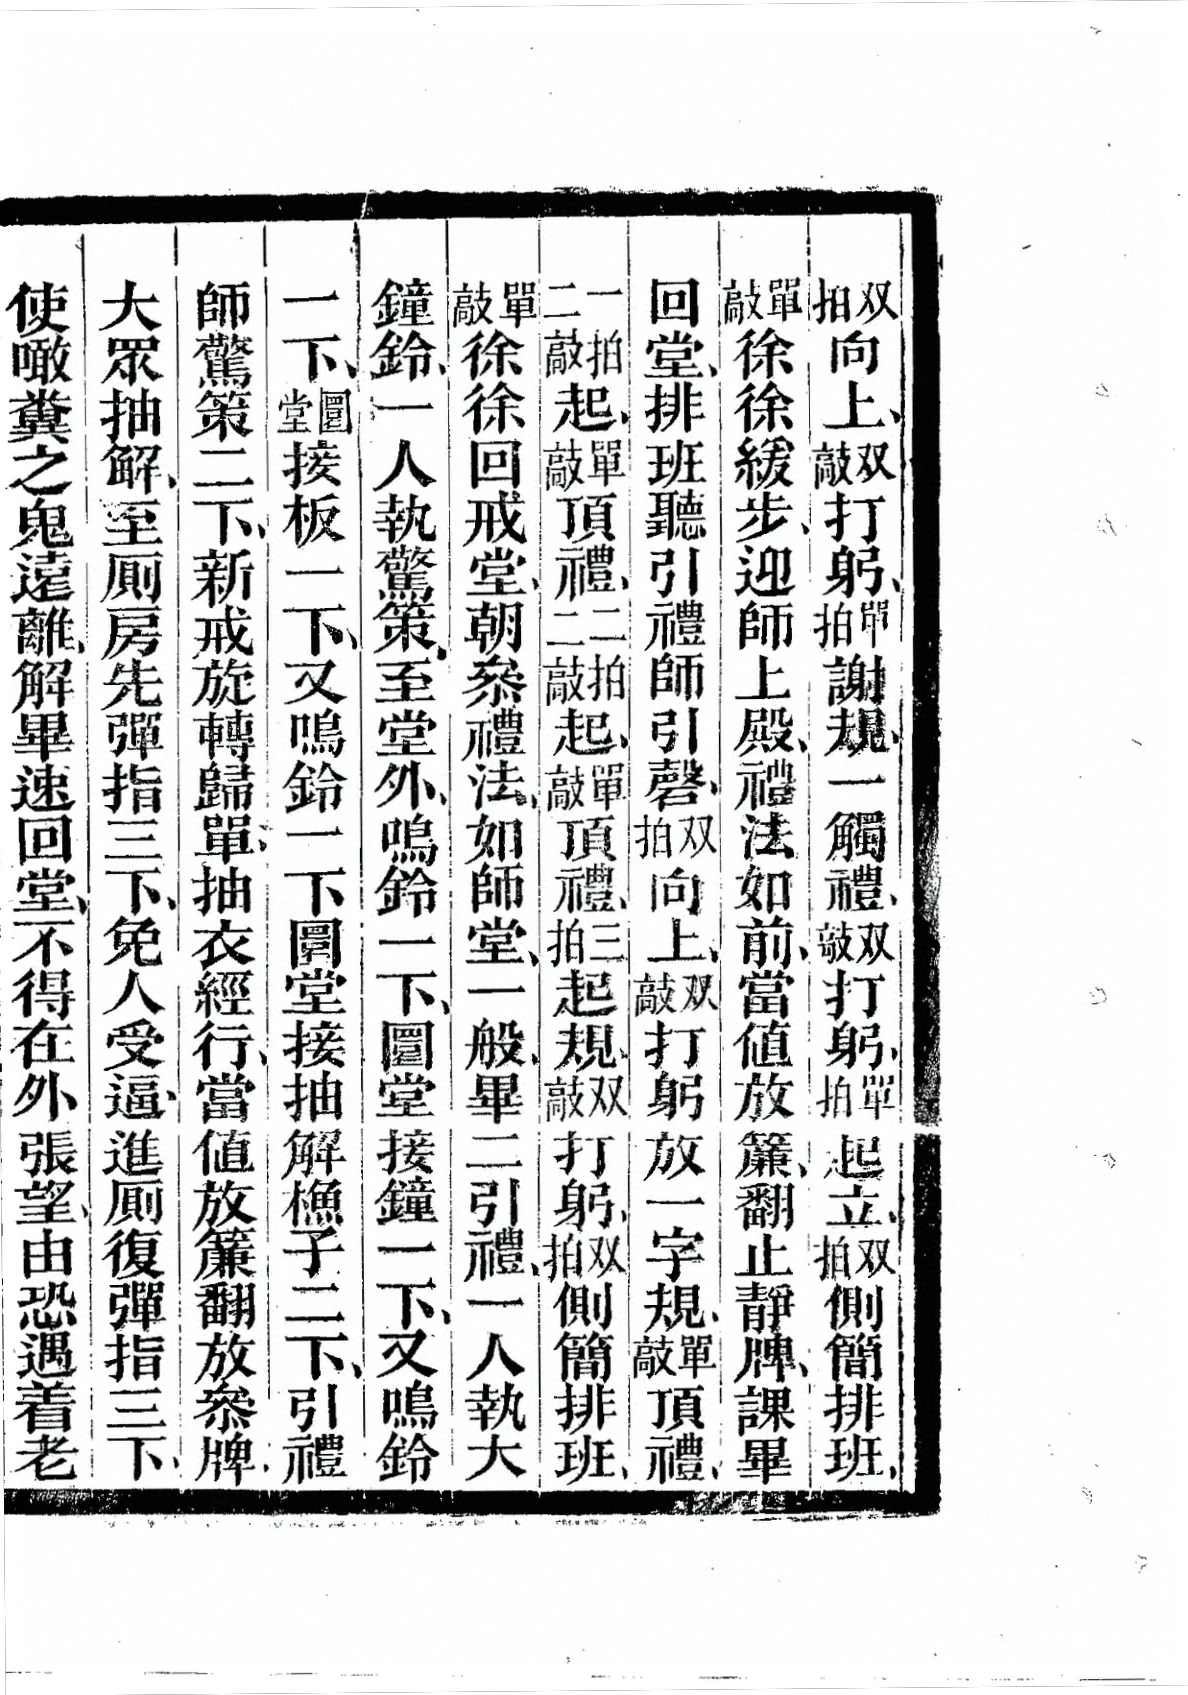 双拍向上、双敲打躬、單拍謝規、一觸禮、双敲打躬、單拍起立、双拍側簡排班、
單敲徐徐緩步、迎師上殿、禮法如前、當値放簾、翻止靜牌、課畢
回堂、排班聽引禮師引磬、双拍向上、双敲打躬放一字規、單敲頂禮、
一拍二敲起、單敲頂禮、二拍二敲起、單敲頂禮、三拍起規、双敲打躬、双拍側簡排班、
單敲徐徐回戒堂、朝叅禮法、如師堂、一般、畢二引禮、一人執大
鐘鈴、一人執驚策、至堂外、鳴鈴一下、圊堂接鐘一下、又鳴鈴
一下、圊堂接板一下、又鳴鈴一下圊堂接抽解檢子二下、引禮
師驚策二下、新戒旋轉歸單、抽衣經行、當値放簾翻放叅牌、
大眾抽解、至厠房先彈指三下、免人受逼、進厠復彈指三下、
使噉糞之鬼遠離、解畢速回堂、不得在外張望、由恐遇着老